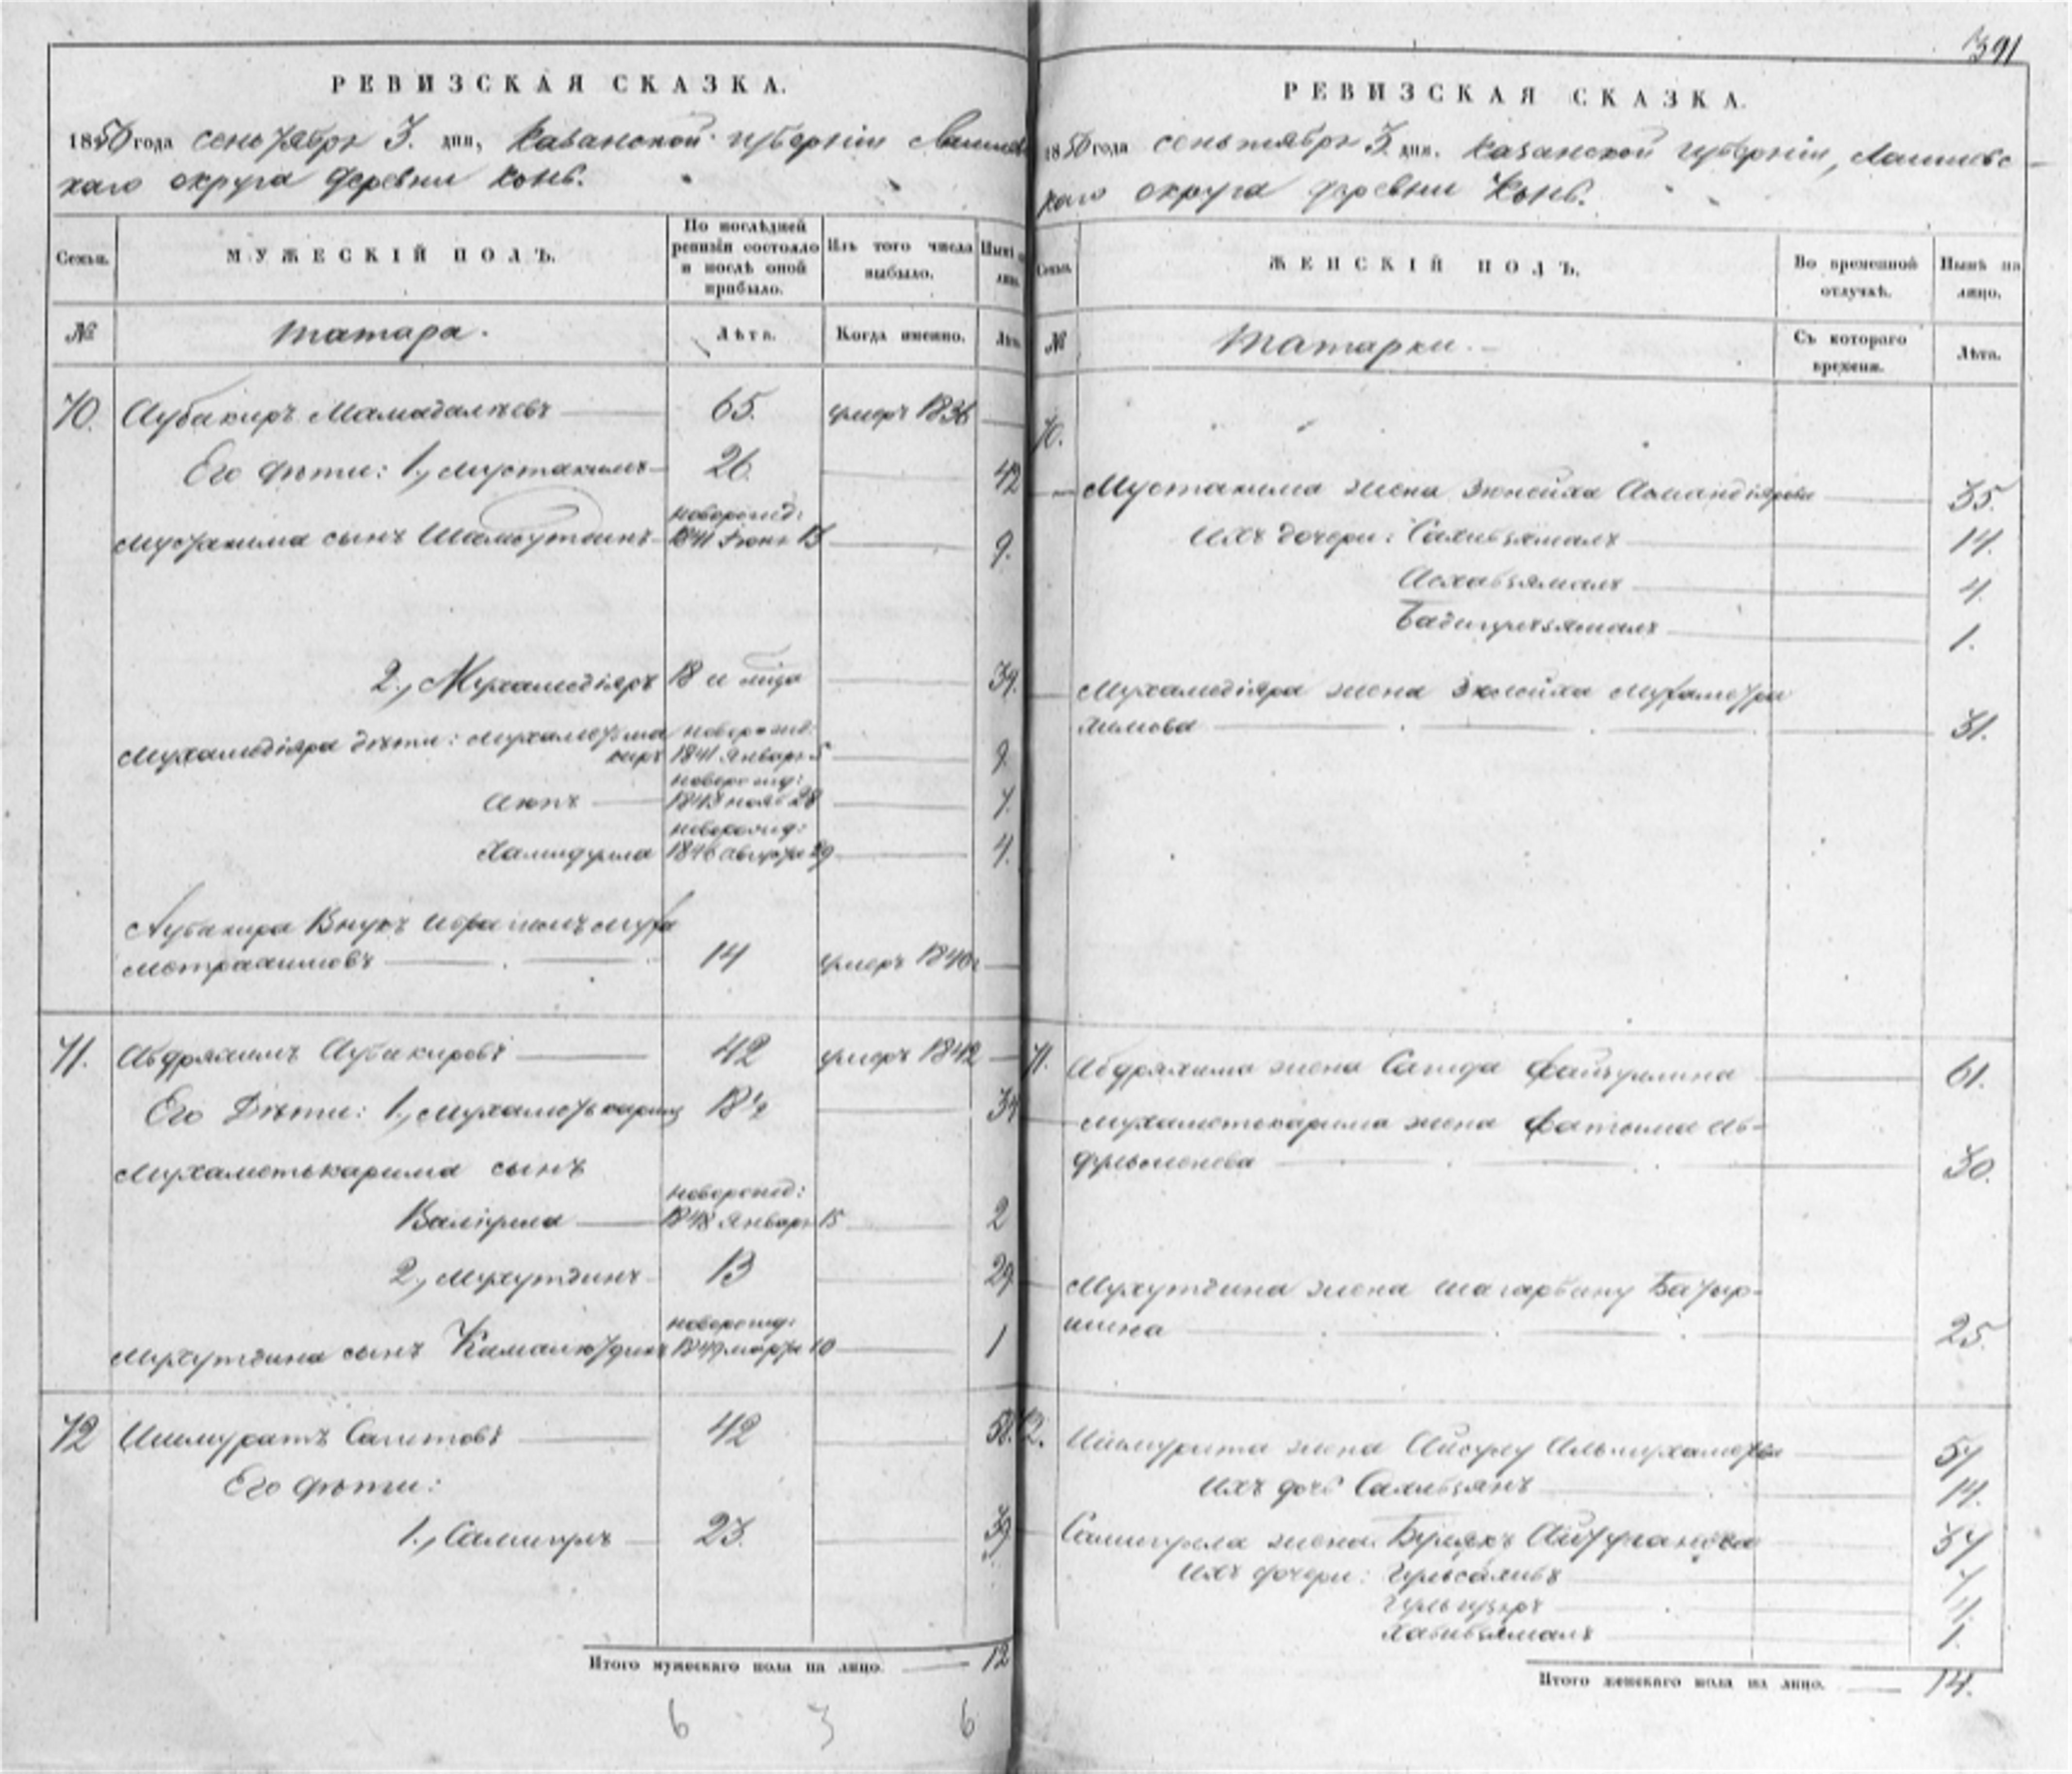 391
РЕВИЗСКАЯ СКАЗКА.
1850 года сентября 3. дня, Казанской губернии Лаишев
скаго округа деревни Конь.
Семьи. МУЖЕСКІЙ ПОЛЪ. По послѣдней ревизіи состояло и послѣ оной прибыло. Изъ того числа выбыло. Нынѣ на лицо.
№ Татара. Лѣта. Когда именно. Лѣта.
70. Аубакиръ Мамадалѣевъ 65. умеръ 1836
Его дѣти: 1., Мустакимъ 26. 42
новорожд:
Мустакима сынъ Шамсутдинъ 1841 Іюня 13 9.
2., Мухамедіяръ 18 и 39.
Мухамедіяра дѣти: Мухаметьша новорожд:
киръ 1841 Январ 5 9
новорожд:
Аюпъ 1843 нояб 28 7.
новорожд:
Халидулла 1846 августа 29 4.
Аубакира Внукъ Ибрагимъ Муха
метрахимовъ 14 умеръ 1840
71. Абдряхимъ Аубакировъ 42 умеръ 1842
Его Дѣти: 1., Мухаметькаримъ 18½ 34
Мухаметькарима сынъ
новорожд:
Валіулла 1848 Январ 15 2
2., Мухутдинъ 13 29
новорожд:
Мухутдина сынъ Камалютдинъ 1849 марта 10 1
72 Ишмуратъ Сагитовъ 42 58.
Его дѣти:
1., Салигулъ 23. 39
Итого мужескаго пола на лицо. 12
6 3 6
РЕВИЗСКАЯ СКАЗКА.
1850 года сентября 3. дня. Казанской губерніи, Лаишевс
каго округа деревни Конь.
Семьи. ЖЕНСКІЙ ПОЛЪ. Во временной отлучкѣ. Нынѣ на лицо.
№ Татарки. Съ котораго времени. Лѣта.
70.
Мустакима жена Зюлейха 35.
Ихъ дочери: Сахибзямалъ 14.
Асхабзямалъ 4.
Бадигулзямалъ 1.
Мухамедіяра жена Зюлейха Мухаметра
химова 31.
71. Абдряхима жена Сагида Файзуллина 61.
Мухаметькарима жена Фатыма Аб-
30.
Мухутдина жена Шагарбану Батыр-
шина 25.
72. Ишмурата жена Айсулу Альмухаметева 57
Ихъ дочь Сахибзянъ 14.
Салигула жена Булякъ 37
Ихъ дочери: Гульсахибъ 7
Гульгузяръ 4.
Хабибзямалъ 1.
Итого женскаго пола на лицо. 14.